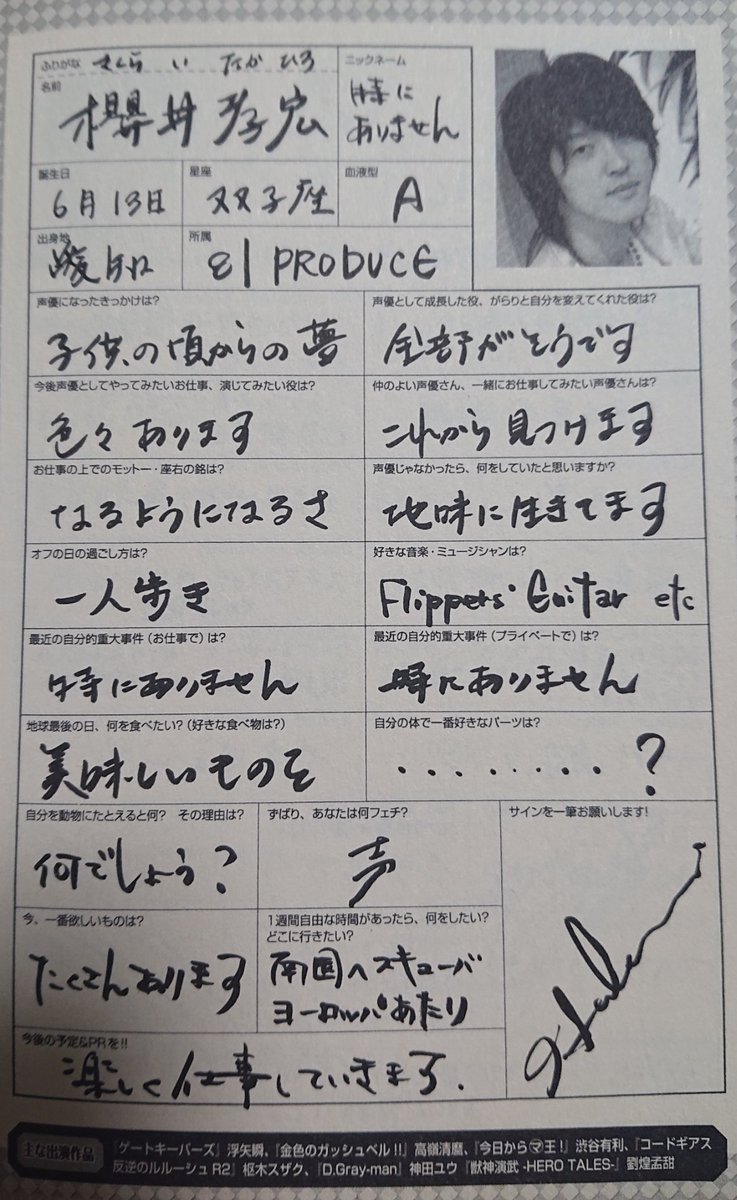 ふりがな さくら い たか ひろ
名前 櫻井孝宏
ニックネーム
特に
ありません
誕生日
6月13日
星座
双子座
血液型
A
出身地
愛知
所属
81 PRODUCE
声優になったきっかけは?
子供の頃からの夢
声優として成長した役、がらりと自分を変えてくれた役は?
全部がそうです
今後声優としてやってみたいお仕事、演じてみたい役は?
色々あります
仲のよい声優さん、一緒にお仕事してみたい声優さんは?
これから見つけます
お仕事の上でのモットー・座右の銘は?
なるようになるさ
声優じゃなかったら、何をしていたと思いますか?
地味に生きてます
オフの日の過ごし方は?
一人歩き
好きな音楽・ミュージシャンは?
Flippers' Guitar etc
最近の自分的重大事件(お仕事で)は?
特にありません
最近の自分的重大事件(プライベートで)は?
特にありません
地球最後の日、何を食べたい?(好きな食べ物は?)
美味しいものを
自分の体で一番好きなパーツは?
........?
自分を動物にたとえると何? その理由は?
何でしょう?
ずばり、あなたは何フェチ?
声
サインを一筆お願いします!
今、一番欲しいものは?
たくさんあります
1週間自由な時間があったら、何をしたい?
どこに行きたい?
南国へスキューバ
ヨーロッパあたり
今後の予定&PRを!!
楽しく仕事していきます.
主な出演作品
『ゲートキーパーズ』浮矢瞬、『金色のガッシュベル!!』高嶺清麿、『今日からマ王!』渋谷有利、『コードギアス
反逆のルルーシュR2』枢木スザク、『D.Gray-man』神田ユウ『獣神演武 -HERO TALES-』劉煌孟甜